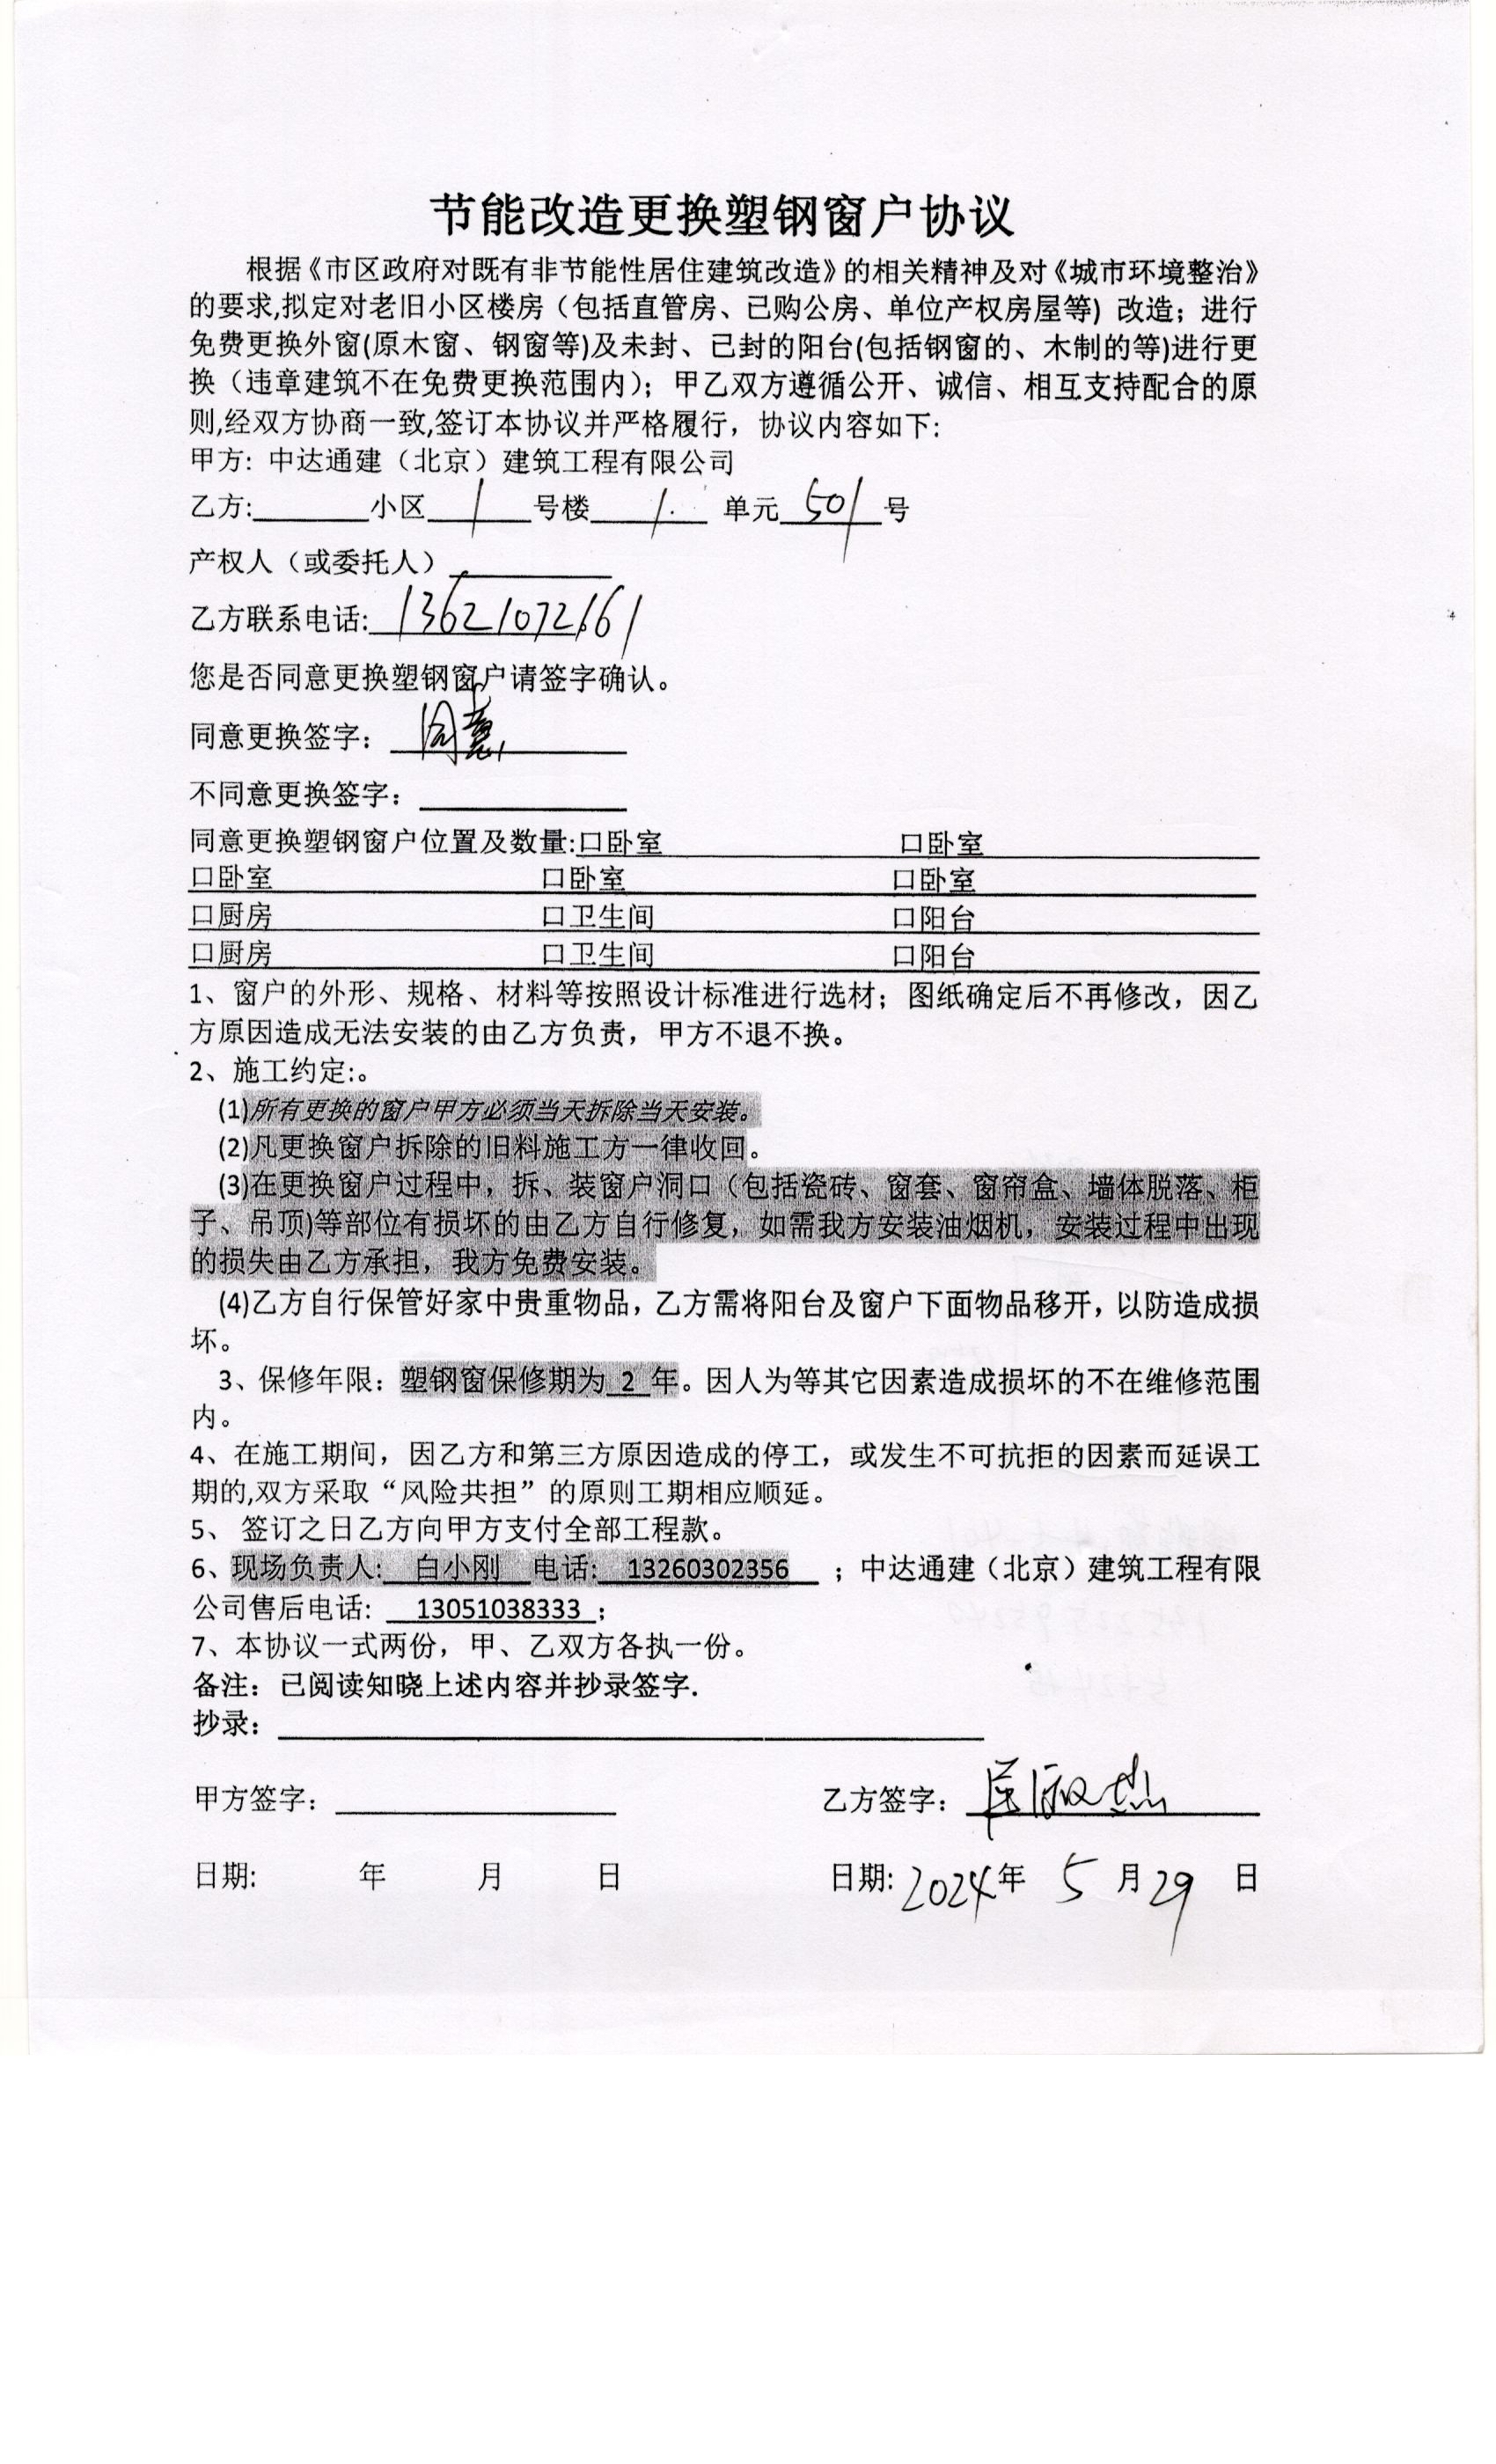 节能改造更换塑钢窗户协议
根据《市区政府对既有非节能性居住建筑改造》的相关精神及对《城市环境整治》
的要求,拟定对老旧小区楼房（包括直管房、已购公房、单位产权房屋等）改造；进行
免费更换外窗(原木窗、钢窗等)及未封、已封的阳台(包括钢窗的、木制的等)进行更
换（违章建筑不在免费更换范围内）；甲乙双方遵循公开、诚信、相互支持配合的原
则,经双方协商一致,签订本协议并严格履行，协议内容如下:
甲方: 中达通建（北京）建筑工程有限公司
乙方:______小区 1 号楼 1 单元 501 号
产权人（或委托人）
乙方联系电话: 13621072161
您是否同意更换塑钢窗户请签字确认。
同意更换签字： 同意
不同意更换签字：
同意更换塑钢窗户位置及数量:口卧室 口卧室
口卧室 口卧室 口卧室
口厨房 口卫生间 口阳台
口厨房 口卫生间 口阳台
1、窗户的外形、规格、材料等按照设计标准进行选材；图纸确定后不再修改，因乙
方原因造成无法安装的由乙方负责，甲方不退不换。
2、施工约定:。
(1)所有更换的窗户甲方必须当天拆除当天安装。
(2)凡更换窗户拆除的旧料施工方一律收回。
(3)在更换窗户过程中，拆、装窗户洞口（包括瓷砖、窗套、窗帘盒、墙体脱落、柜
子、吊顶)等部位有损坏的由乙方自行修复，如需我方安装油烟机，安装过程中出现
的损失由乙方承担，我方免费安装。
(4)乙方自行保管好家中贵重物品，乙方需将阳台及窗户下面物品移开，以防造成损
坏。
3、保修年限：塑钢窗保修期为 2 年。因人为等其它因素造成损坏的不在维修范围
内。
4、在施工期间，因乙方和第三方原因造成的停工，或发生不可抗拒的因素而延误工
期的,双方采取“风险共担”的原则工期相应顺延。
5、 签订之日乙方向甲方支付全部工程款。
6、现场负责人: 白小刚 电话: 13260302356 ；中达通建（北京）建筑工程有限
公司售后电话: 13051038333 ；
7、本协议一式两份，甲、乙双方各执一份。
备注：已阅读知晓上述内容并抄录签字.
抄录：
甲方签字： 乙方签字：
日期: 年 月 日 日期: 2024年 5 月 29 日